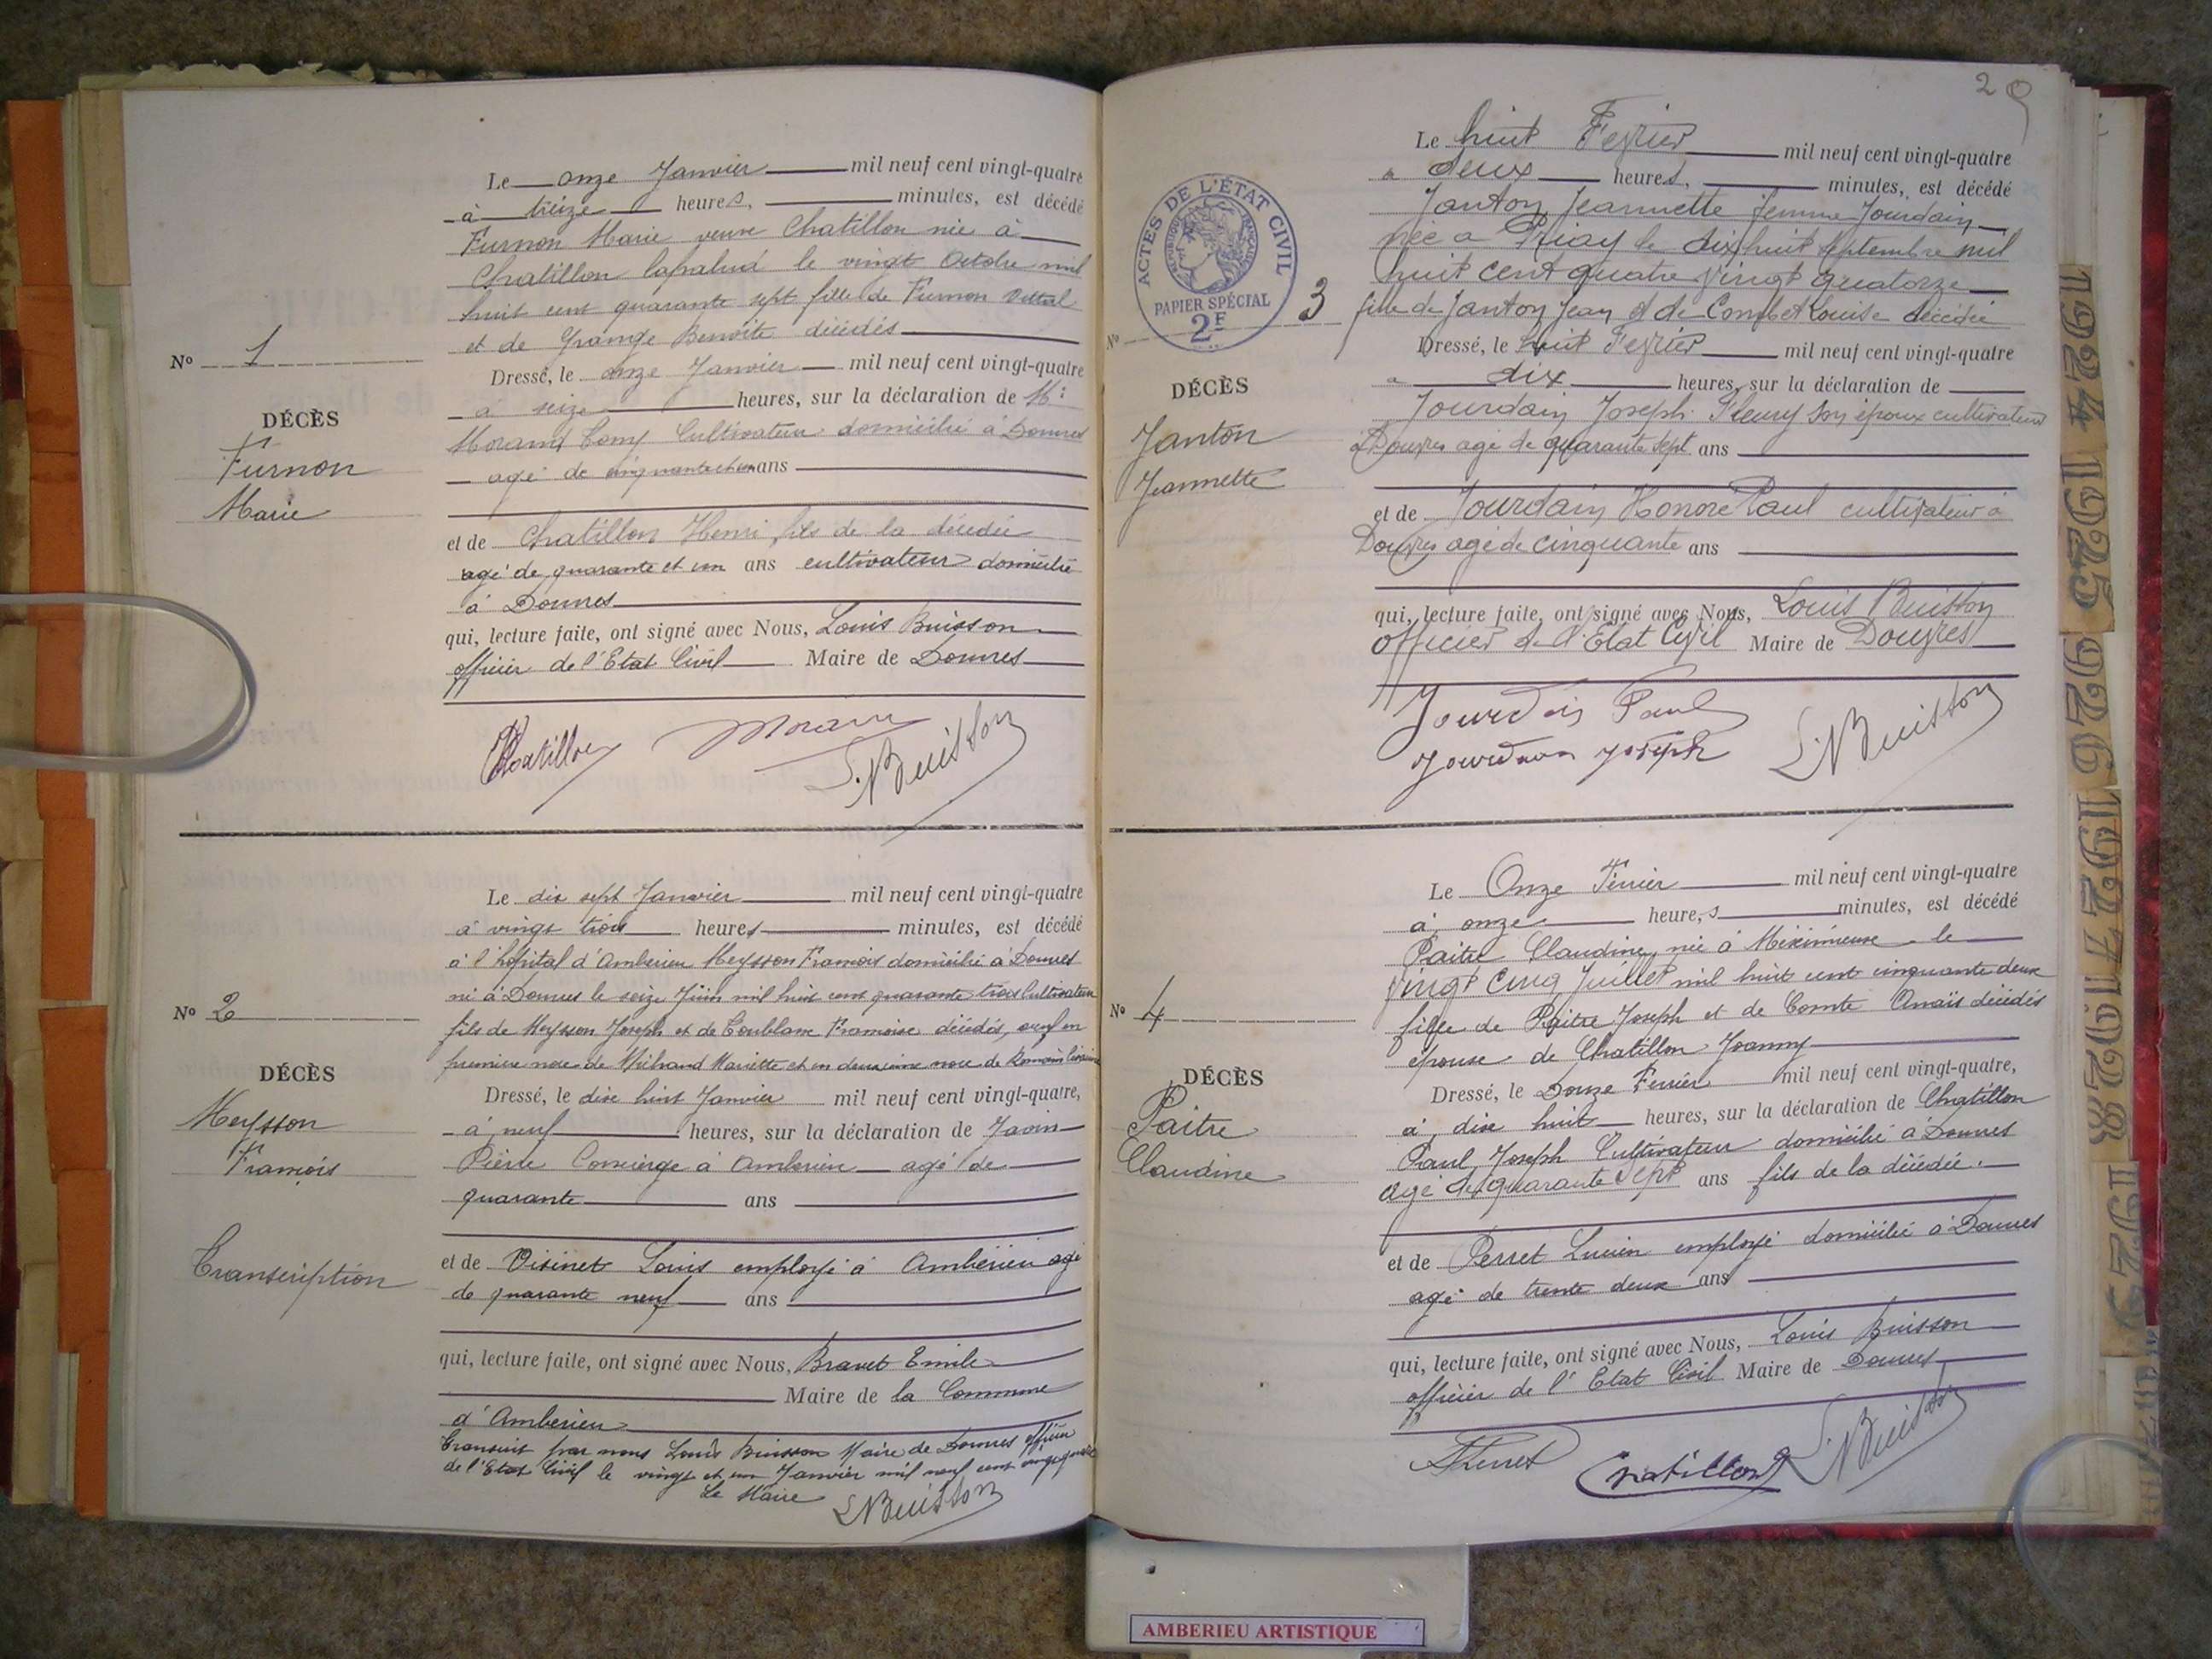 Le onze Janvier mil neuf cent vingt-quatre
à treize heures, minutes, est décédé
Furnon Marie veuve Chatillon née à
Chatillon Lapalud le vingt Octobre mil
huit cent quarante sept fille de Furnon Vittal
et de Grange Benoite décédés
Nº 1
Dressé, le onze Janvier mil neuf cent vingt-quatre
à seize heures, sur la déclaration de Mr
DÉCÈS
Furnon
Marie
Morand Cultivateur domicilié à Douvres
agé de ans
et de Chatillon Henri fils de la décédée
agé de quarante et un ans cultivateur domicilié
à Douvres
qui, lecture faite, ont signé avec Nous, Louis Buisson
officier de l'Etat Civil Maire de Douvres
Chatillon Morand
L. Buisson
Le dix sept Janvier mil neuf cent vingt-quatre
à vingt trois heures minutes, est décédé
à l'hopital d'Amberieu Meysson François domicilié à Douvres
né à Douvres le seize Juin mil huit cent quarante trois Cultivateur
Nº 2
fils de Meysson Joseph et de Coublanc Françoise décédés, veuf en
premiere noce de Mariette et en deuxieme noce de Romain
DÉCÈS
Meysson
François
Transcription
Dressé, le dix huit Janvier mil neuf cent vingt-quatre,
à neuf heures, sur la déclaration de Javin
Pierre Concierge à Amberieu agé de
quarante ans
et de Visinet Louis employé à Ambérieu agé
de quarante neuf ans
qui, lecture faite, ont signé avec Nous, Bravet Emile
Maire de la Commune
d'Amberieu
Transcrit par nous Louis Buisson Maire de Douvres officier
de l'Etat Civil le vingt et un Janvier mil neuf cent vingt quatre
Le Maire L. Buisson
2
Le huit Fevrier mil neuf cent vingt-quatre
a deux heures, minutes, est décédé
Janton Jeannette femme Jourdain
née a Priay le dix huit Septembre mil
huit cent quatre vingt quatorze
fille de Janton Jean et de Combet Louise décédée
ACTES DE L'ÉTAT CIVIL
RÉPUBLIQUE FRANÇAISE
PAPIER SPÉCIAL
2F
Nº 3
DÉCÈS
Janton
Jeannette
Dressé, le huit Fevrier mil neuf cent vingt-quatre
a dix heures, sur la déclaration de
Jourdain Joseph Fleury son époux cultivateur
a Douvres agé de quarante sept ans
et de Jourdain Honoré Paul cultivateur à
Douvres agé de cinquante ans
qui, lecture faite, ont signé avec Nous, Louis Buisson
officier de l'Etat Civil Maire de Douvres
Jourdain Paul
Jourdain Joseph
L. Buisson
Le Onze Février mil neuf cent vingt-quatre
à onze heures minutes, est décédé
Paitre Claudine, née à Méximieux le
vingt cinq Juillet mil huit cent cinquante deux
Nº 4
fille de Paitre Joseph et de Comte Anaïs décédés
épouse de Chatillon Joanny
DÉCÈS
Paitre
Claudine
Dressé, le Douze Fevrier mil neuf cent vingt-quatre,
à dix huit heures, sur la déclaration de Chatillon
Paul Joseph Cultivateur domicilié à Douvres
agé de quarante sept ans fils de la décédée.
et de Perret Lucien employé domicilié à Douvres
agé de trente deux ans
qui, lecture faite, ont signé avec Nous, Louis Buisson
officier de l'Etat Civil Maire de Douvres
Perret Chatillon L. Buisson
1924
1925
1926
1927
1928
1929
AMBERIEU ARTISTIQUE